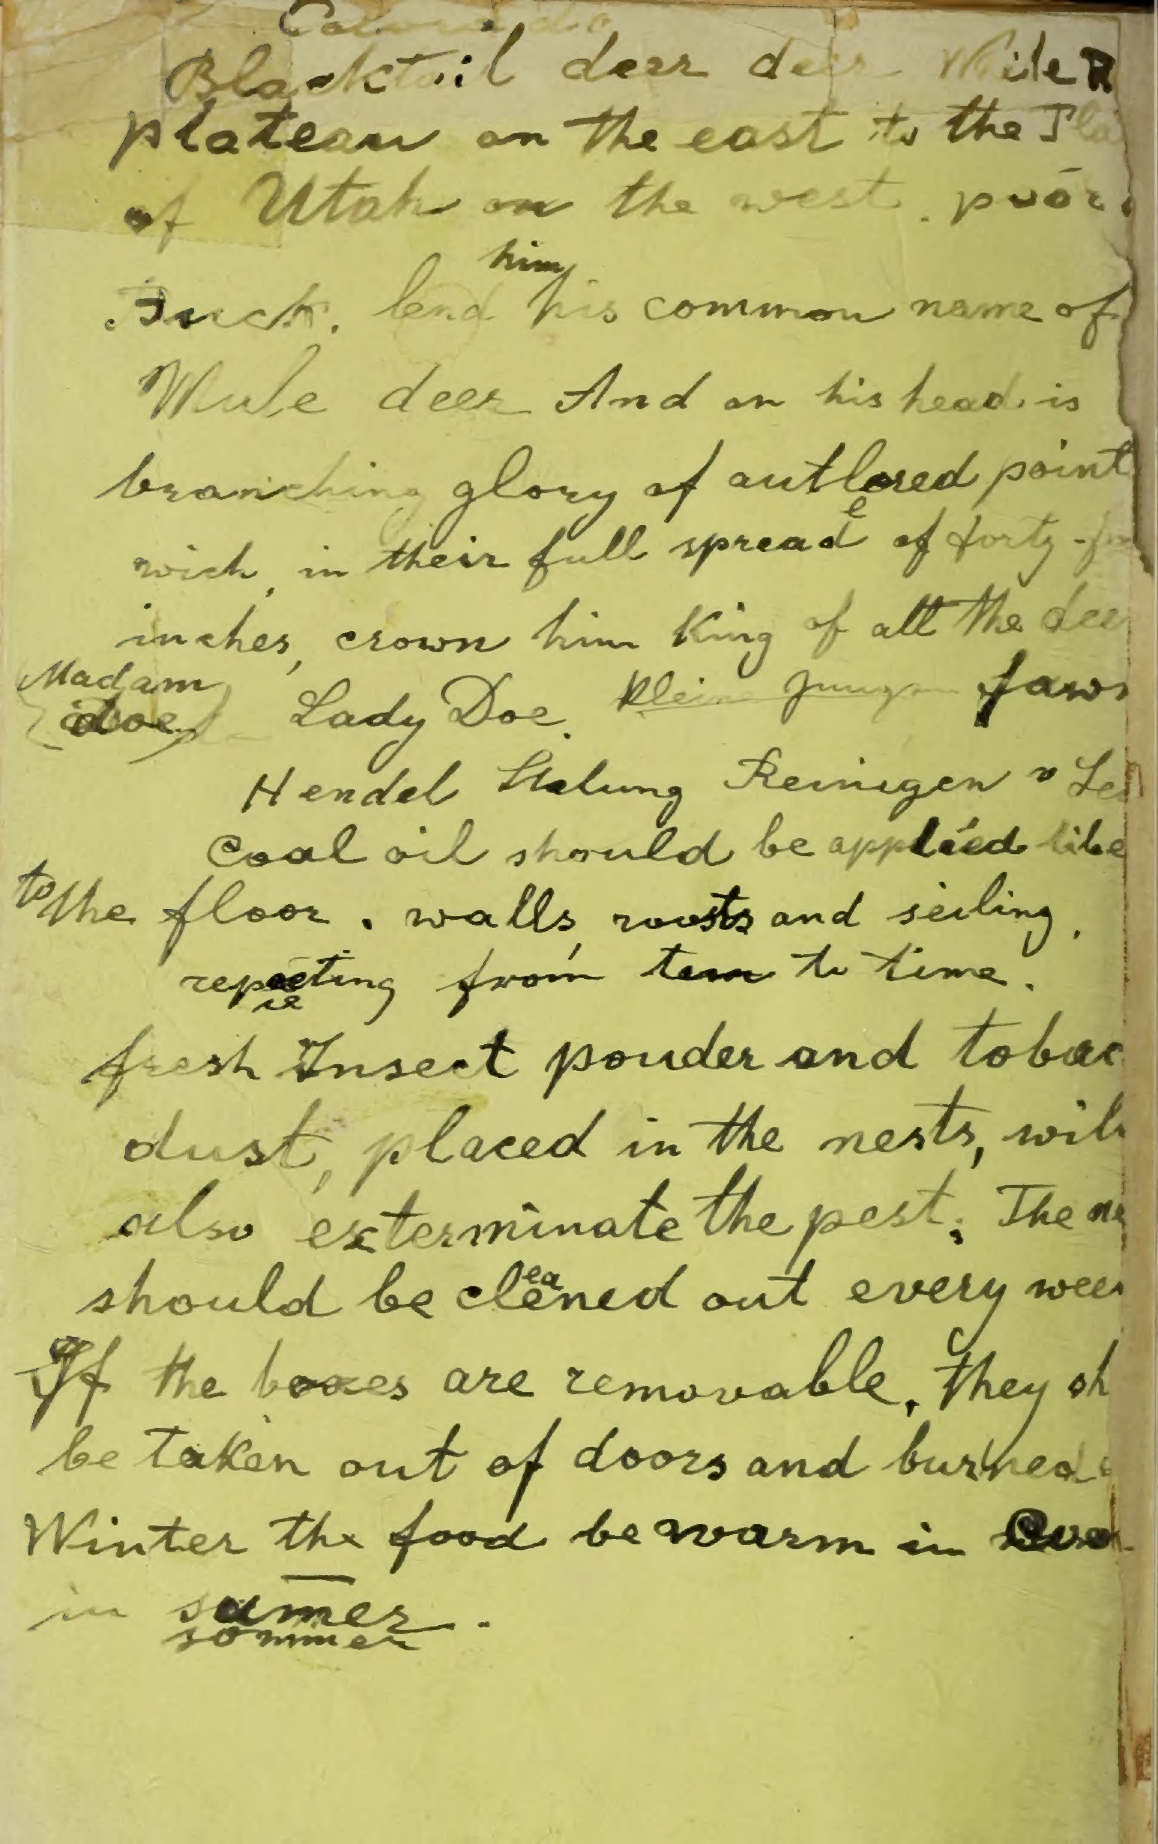 Colorado
Blacktail deer deer
plateau on the east to the
of Utah on the west. poor
Buck. lend him his common name of
Mule deer And on his head is
branching glory of autlered point
wich, in their full spread of forty-
inches, crown him King of all the dee
Madam
doe Lady Doe. kleine Jungen fawn
Hendel Stalung Reinigen
Coal oil should be applied
to the floor. walls, roosts and seiling,
repeeting from tem to time.
fresh Insect pouder and tobac
dust, placed in the nests, will
also exterminate the pest. The ne
should be cleaned out every wee
If the boxes are removable, they sh
be taken out of doors and burned
Winter the food be warm in
in sumer.
sommer